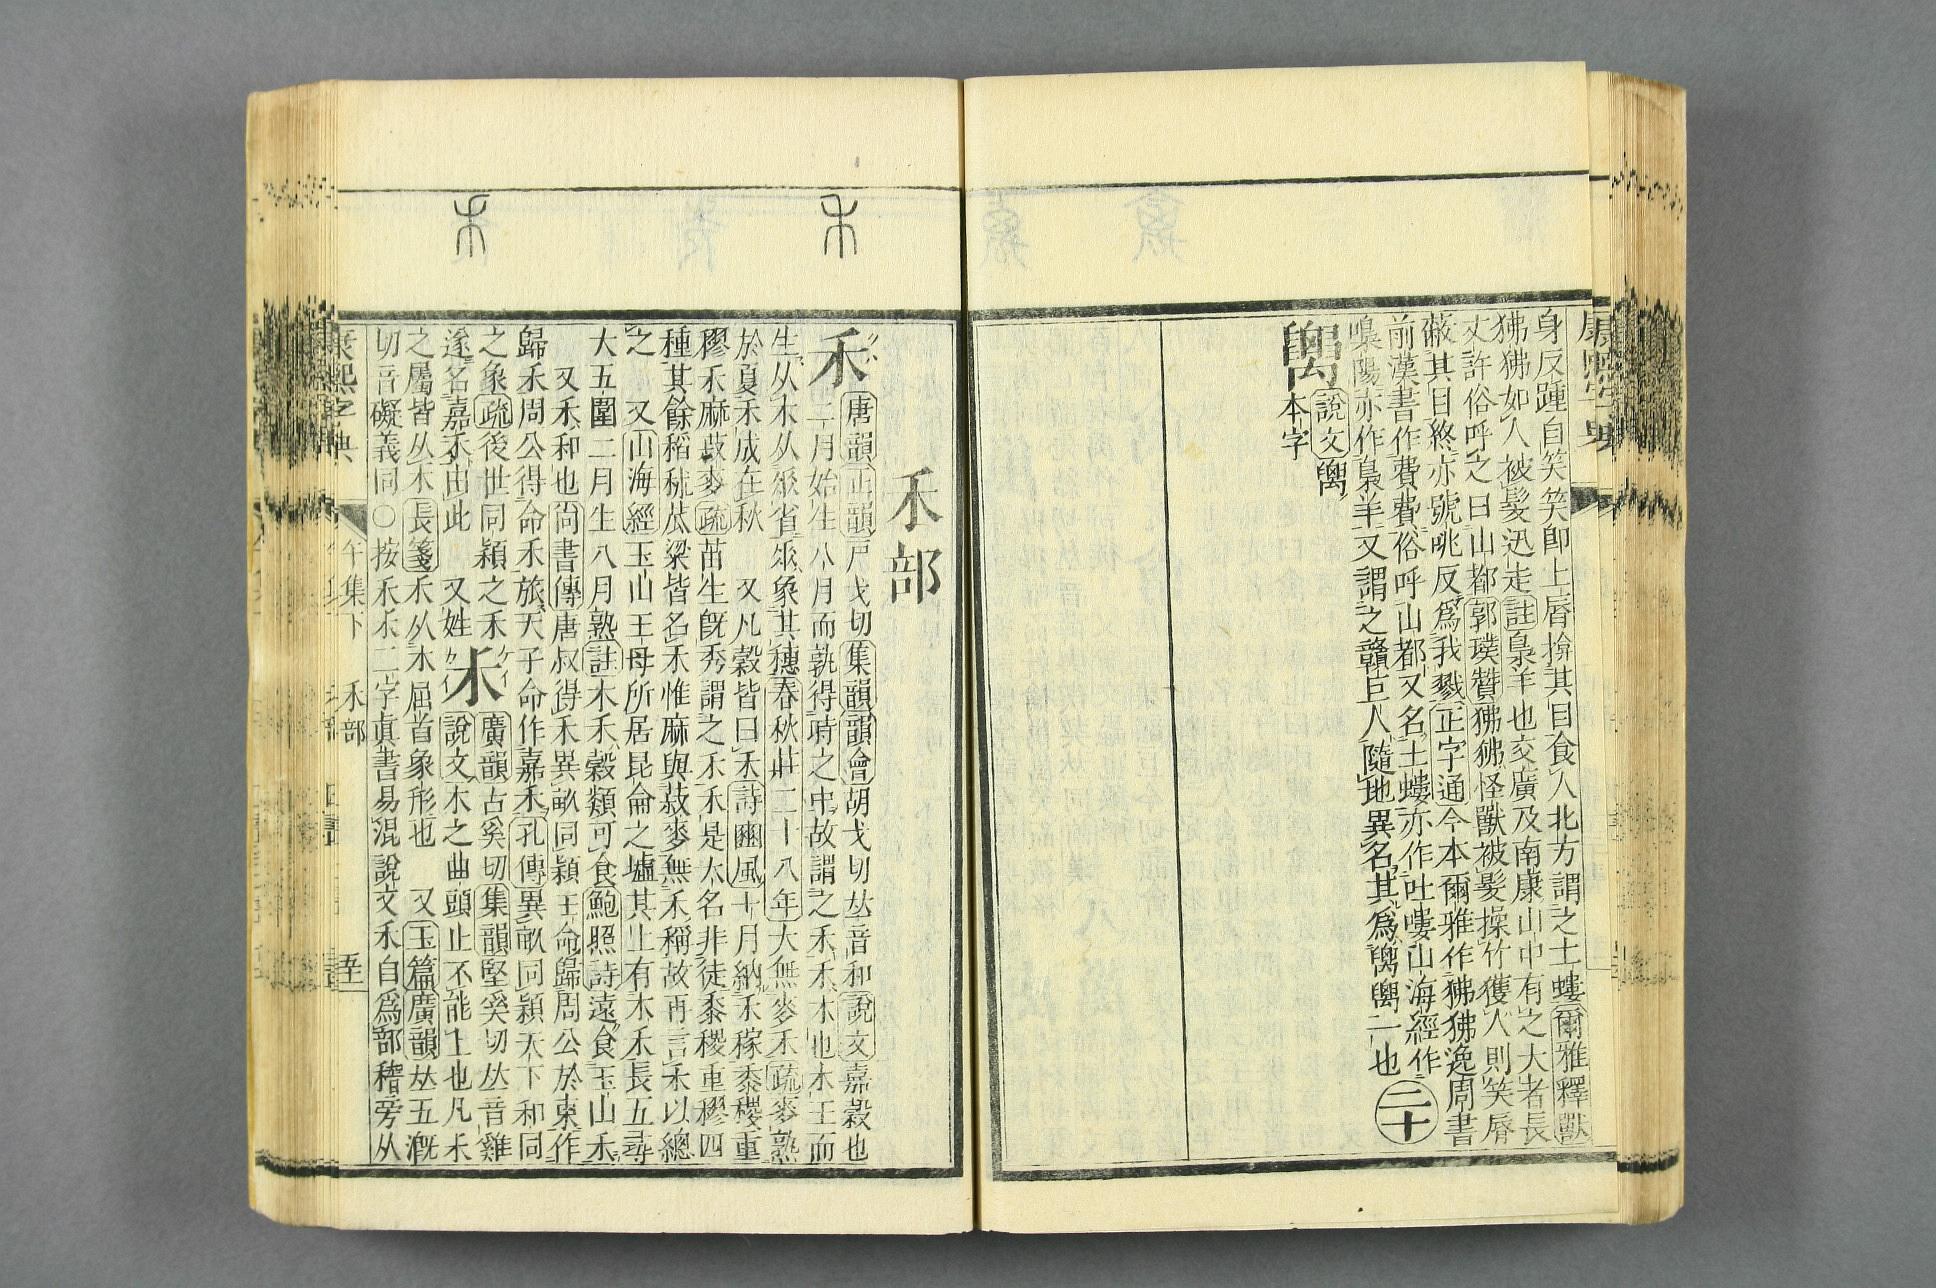 身反踵自笑笑卽上脣揜其目食人北方謂之土螻爾雅釋獸
狒狒如人被髮迅走註梟羊也交廣及南康山中有之大者長
丈許俗呼之曰山都郭璞贊狒狒怪獸被髮操竹獲人則笑脣
蔽其目終亦號咷反爲我戮正字通今本爾雅作狒狒逸周書
前漢書作費費俗呼山都又名土螻亦作吐嘍山海經作
嘷陽亦作梟羊又謂之贛巨人隨地異名其爲𥝄𥝄一也
二十
說文
本字
禾部
禾
唐韻正韻戸戈切集韻韻會胡戈切𠀤音和說文嘉穀也
二月始生八月而孰得時之中故謂之禾禾木也木王而
生从木从𠂹省𠂹象其穗春秋莊二十八年大無麥禾疏麥熟
於夏禾成在秋 又凡穀皆曰禾詩豳風十月納禾稼黍稷重
穋禾麻菽麥疏苗生旣秀謂之禾禾是大名非徒黍稷重穋四
種其餘稻秫苽粱皆名禾惟麻與菽麥無禾稱故再言禾以總
之 又山海經玉山王母所居昆侖之墟其上有木禾長五尋
大五圍二月生八月熟註木禾穀類可食鮑照詩遠食玉山禾
又禾和也尙書傳唐叔得禾異畝同穎王命歸周公於東作
歸禾周公得命禾旅天子命作嘉禾孔傳異畝同穎天下和同
之象疏後世同穎之禾
遂名嘉禾由此 又姓
𥝌
廣韻古奚切集韻堅奚切𠀤音雞
說文木之曲頭止不能上也凡𥝌
之屬皆从𥝌長箋𥝌从木屈首象形也 又玉篇廣韻𠀤五漑
切音礙義同○按禾𥝌二字眞書易混說文𥝌自爲部稽旁从
康熙字典
午集下 禾部
康熙字典